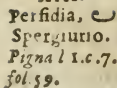 Perfidia, &
Spergiurio.
Pigna l 1.c.7.
fol.59.